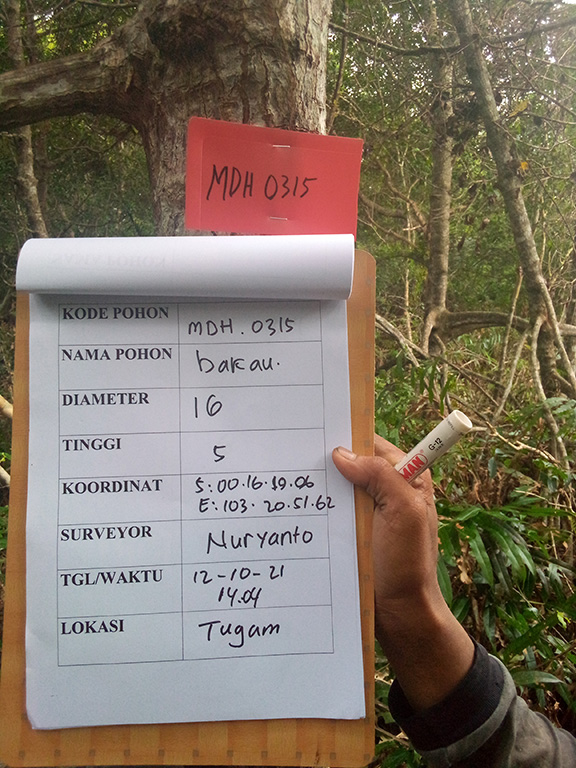 MDH 0315
KODE POHON MDH.0315
NAMA POHON bakau.
DIAMETER 16
TINGGI 5
KOORDINAT S:00.16.19.06
E:103.20.51.62
SURVEYOR Nuryanto
TGL/WAKTU 12-10-21
14.04
LOKASI Tugam
G-12